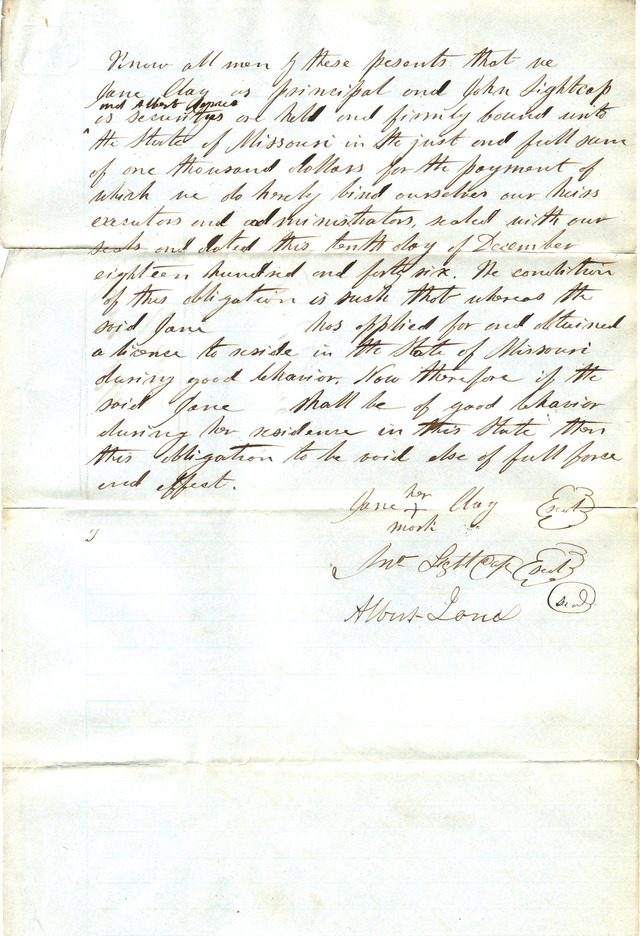 Know all men by these presents that we
Jane Clay as principal and John Lightcap
and Albert Jones
as securitys are held and firmly bound unto
the State of Missouri in the just and full sum
of one thousand dollars for the payment of
which we do hereby bind ourselves our heirs
executors and administrators, sealed with our
seals and dated this tenth day of December
eighteen hundred and forty six. The condition
of this obligation is such that whereas the
said Jane has applied for and obtained
a licence to reside in the State of Missouri
during good behavior. Now therefore if the
said Jane shall be of good behavior
during her residence in this State then
this obligation to be void else of full force
and effect.
Jane her + mark Clay (seal)
Jno Lightcap (seal)
Albert Jones (seal)